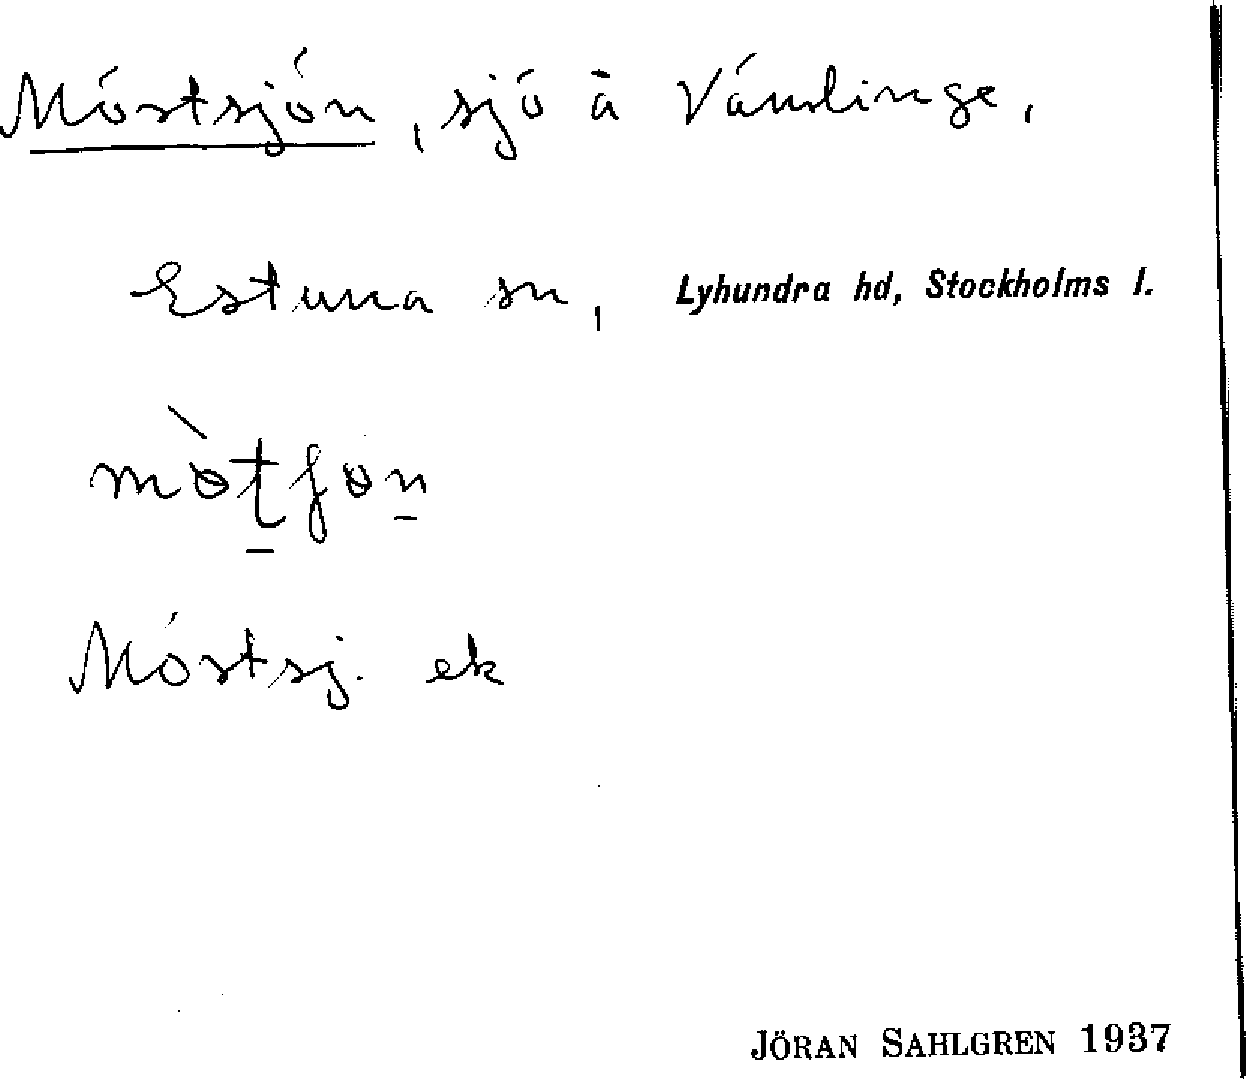 Mörtsjön, sjö å Vämlinge,
Estuna sn, Lyhundra hd, Stockholms l.
Mörtsj. ek
JÖRAN SAHLGREN 1937